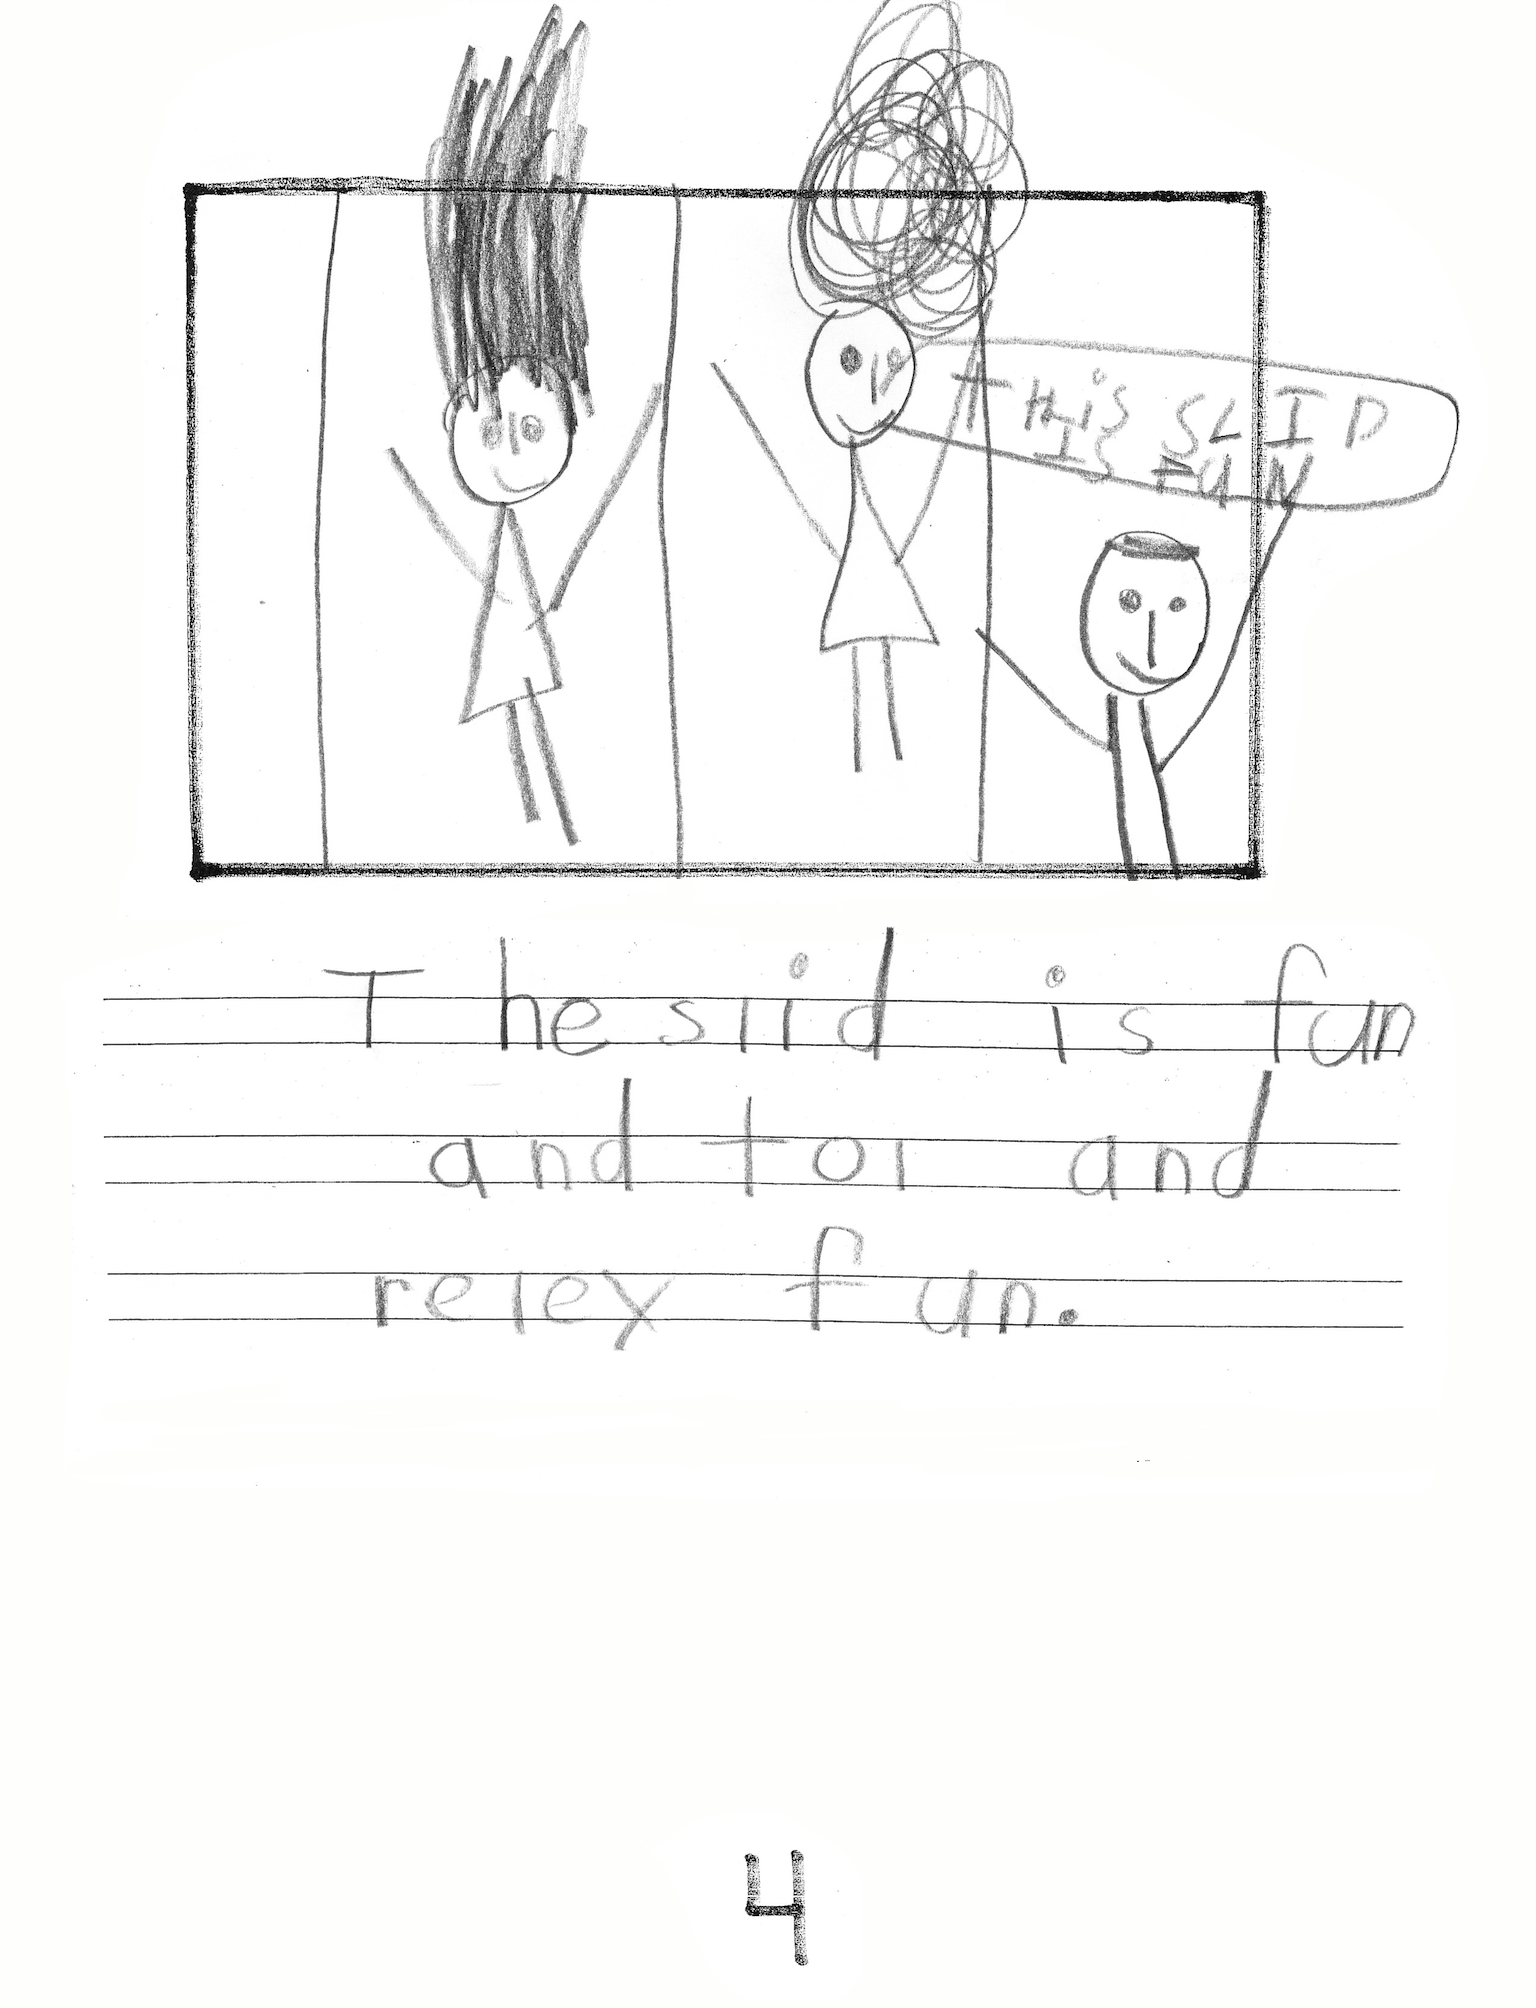 tHis SLID
Is FUN
The slid is fun
and tol and
relex fun.
4